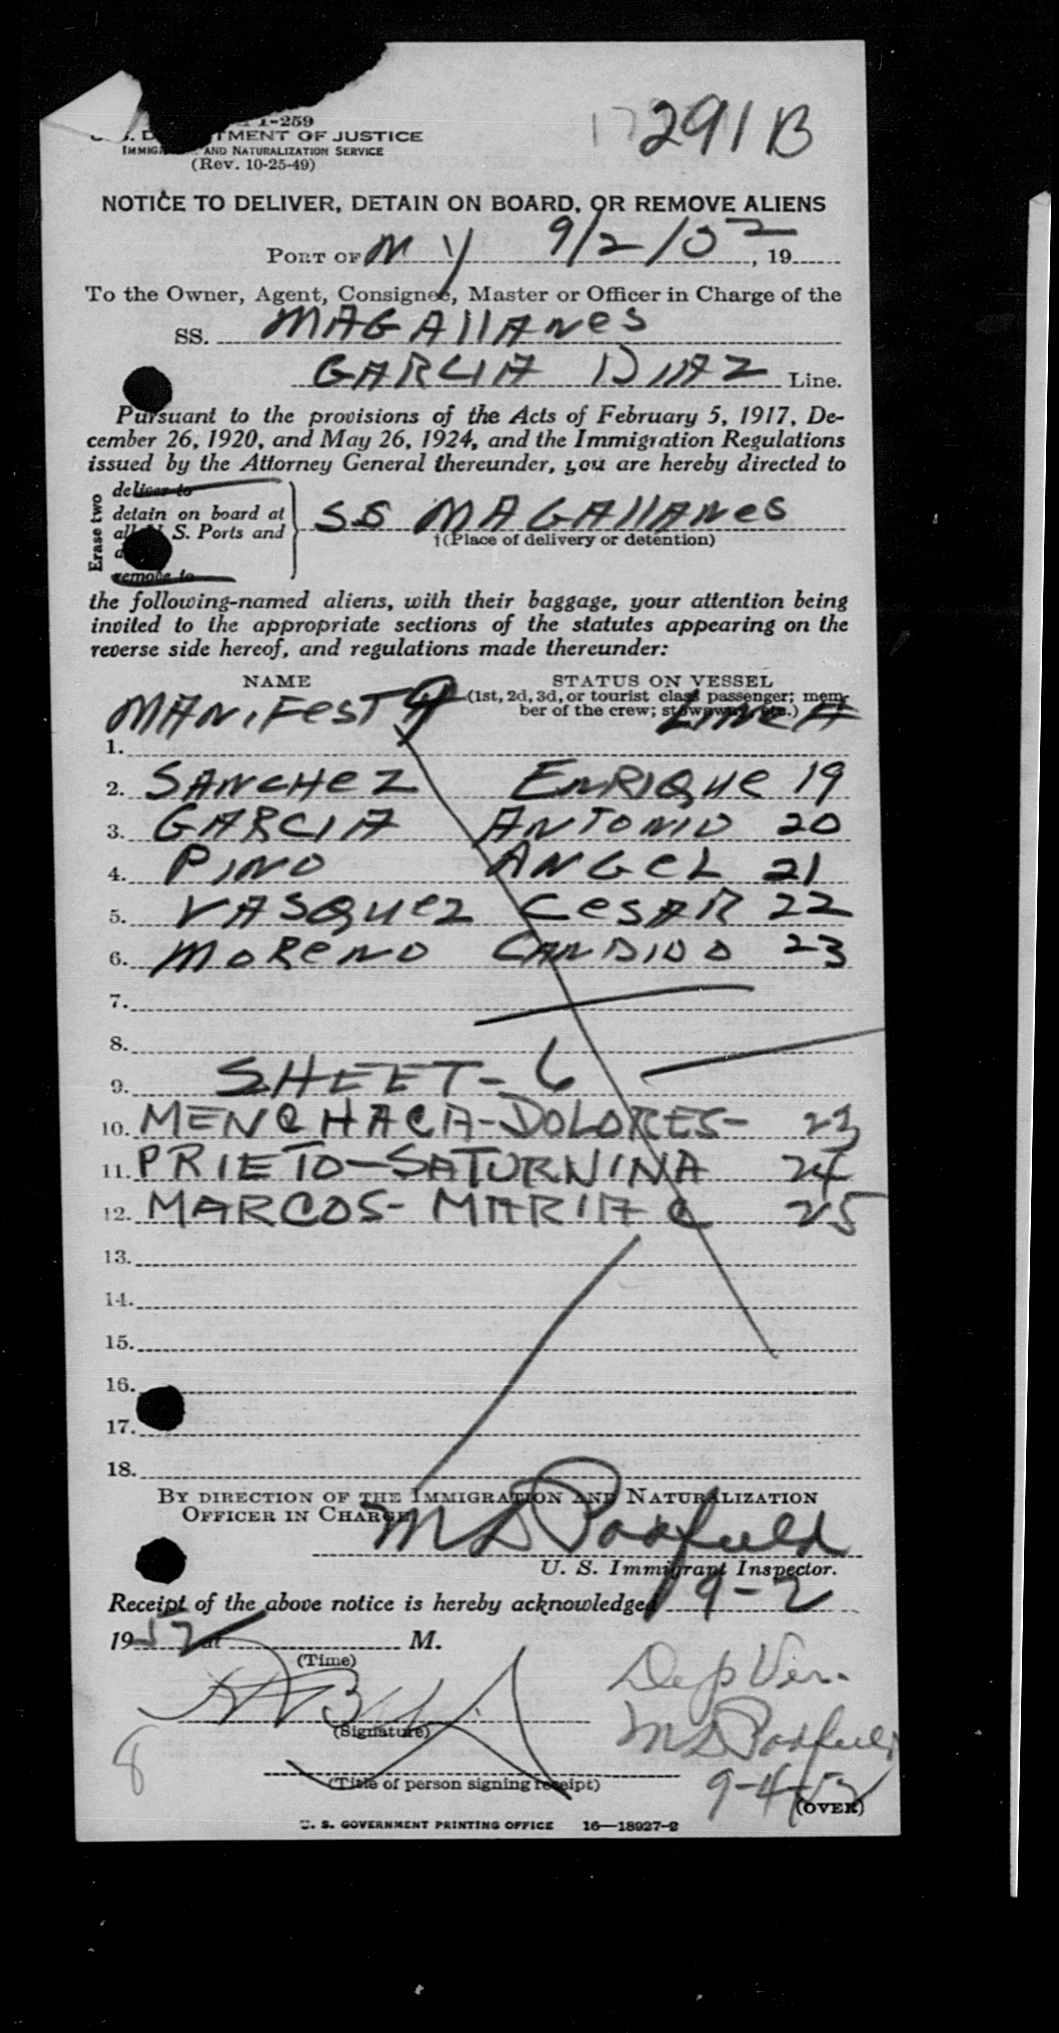 I-259
291 B
TMENT OF JUSTICE
AND NATURALIZATION SERVICE
(Rev. 10-25-49)
NOTICE TO DELIVER, DETAIN ON BOARD, OR REMOVE ALIENS
PORT OF N Y 9/2/52, 19
To the Owner, Agent, Consignee, Master or Officer in Charge of the
SS. MAGAllANes
GARCIA DIAZ Line.
Pursuant to the provisions of the Acts of February 5, 1917, De-
cember 26, 1920, and May 26, 1924, and the Immigration Regulations
issued by the Attorney General thereunder, you are hereby directed to
Erase two
deliver to
detain on board at
S. Ports and
remove to
SS MAGAllANes
†(Place of delivery or detention)
the following-named aliens, with their baggage, your attention being
invited to the appropriate sections of the statutes appearing on the
reverse side hereof, and regulations made thereunder:
NAME STATUS ON VESSEL
(1st, 2d, 3d, or tourist class passenger; mem-
ber of the crew; stowaway, etc.)
MANiFesT 9 LINe A
1.
2. SANCHeZ ENRIQUe 19
3. GARCIA ANTONIO 20
4. PINO ANGeL 21
5. VASQUez CesAR 22
6. MOReNO CANDIDO 23
7.
8.
9. SHEET- 6
10. MENCHACA-DOLORES- 23
11. PRIETO-SATURNINA 24
12. MARCOS- MARIA C 25
13.
14.
15.
16.
17.
18.
BY DIRECTION OF THE IMMIGRATION AND NATURALIZATION
OFFICER IN CHARGE
M L Padfield
U. S. Immigrant Inspector.
Receipt of the above notice is hereby acknowledged 9-2
1952 at M.
(Time)
Dep Ver.
(Signature)
M L Padfield
8
(Title of person signing receipt)
9-4-52
(OVER)
U. S. GOVERNMENT PRINTING OFFICE 16—18927-2